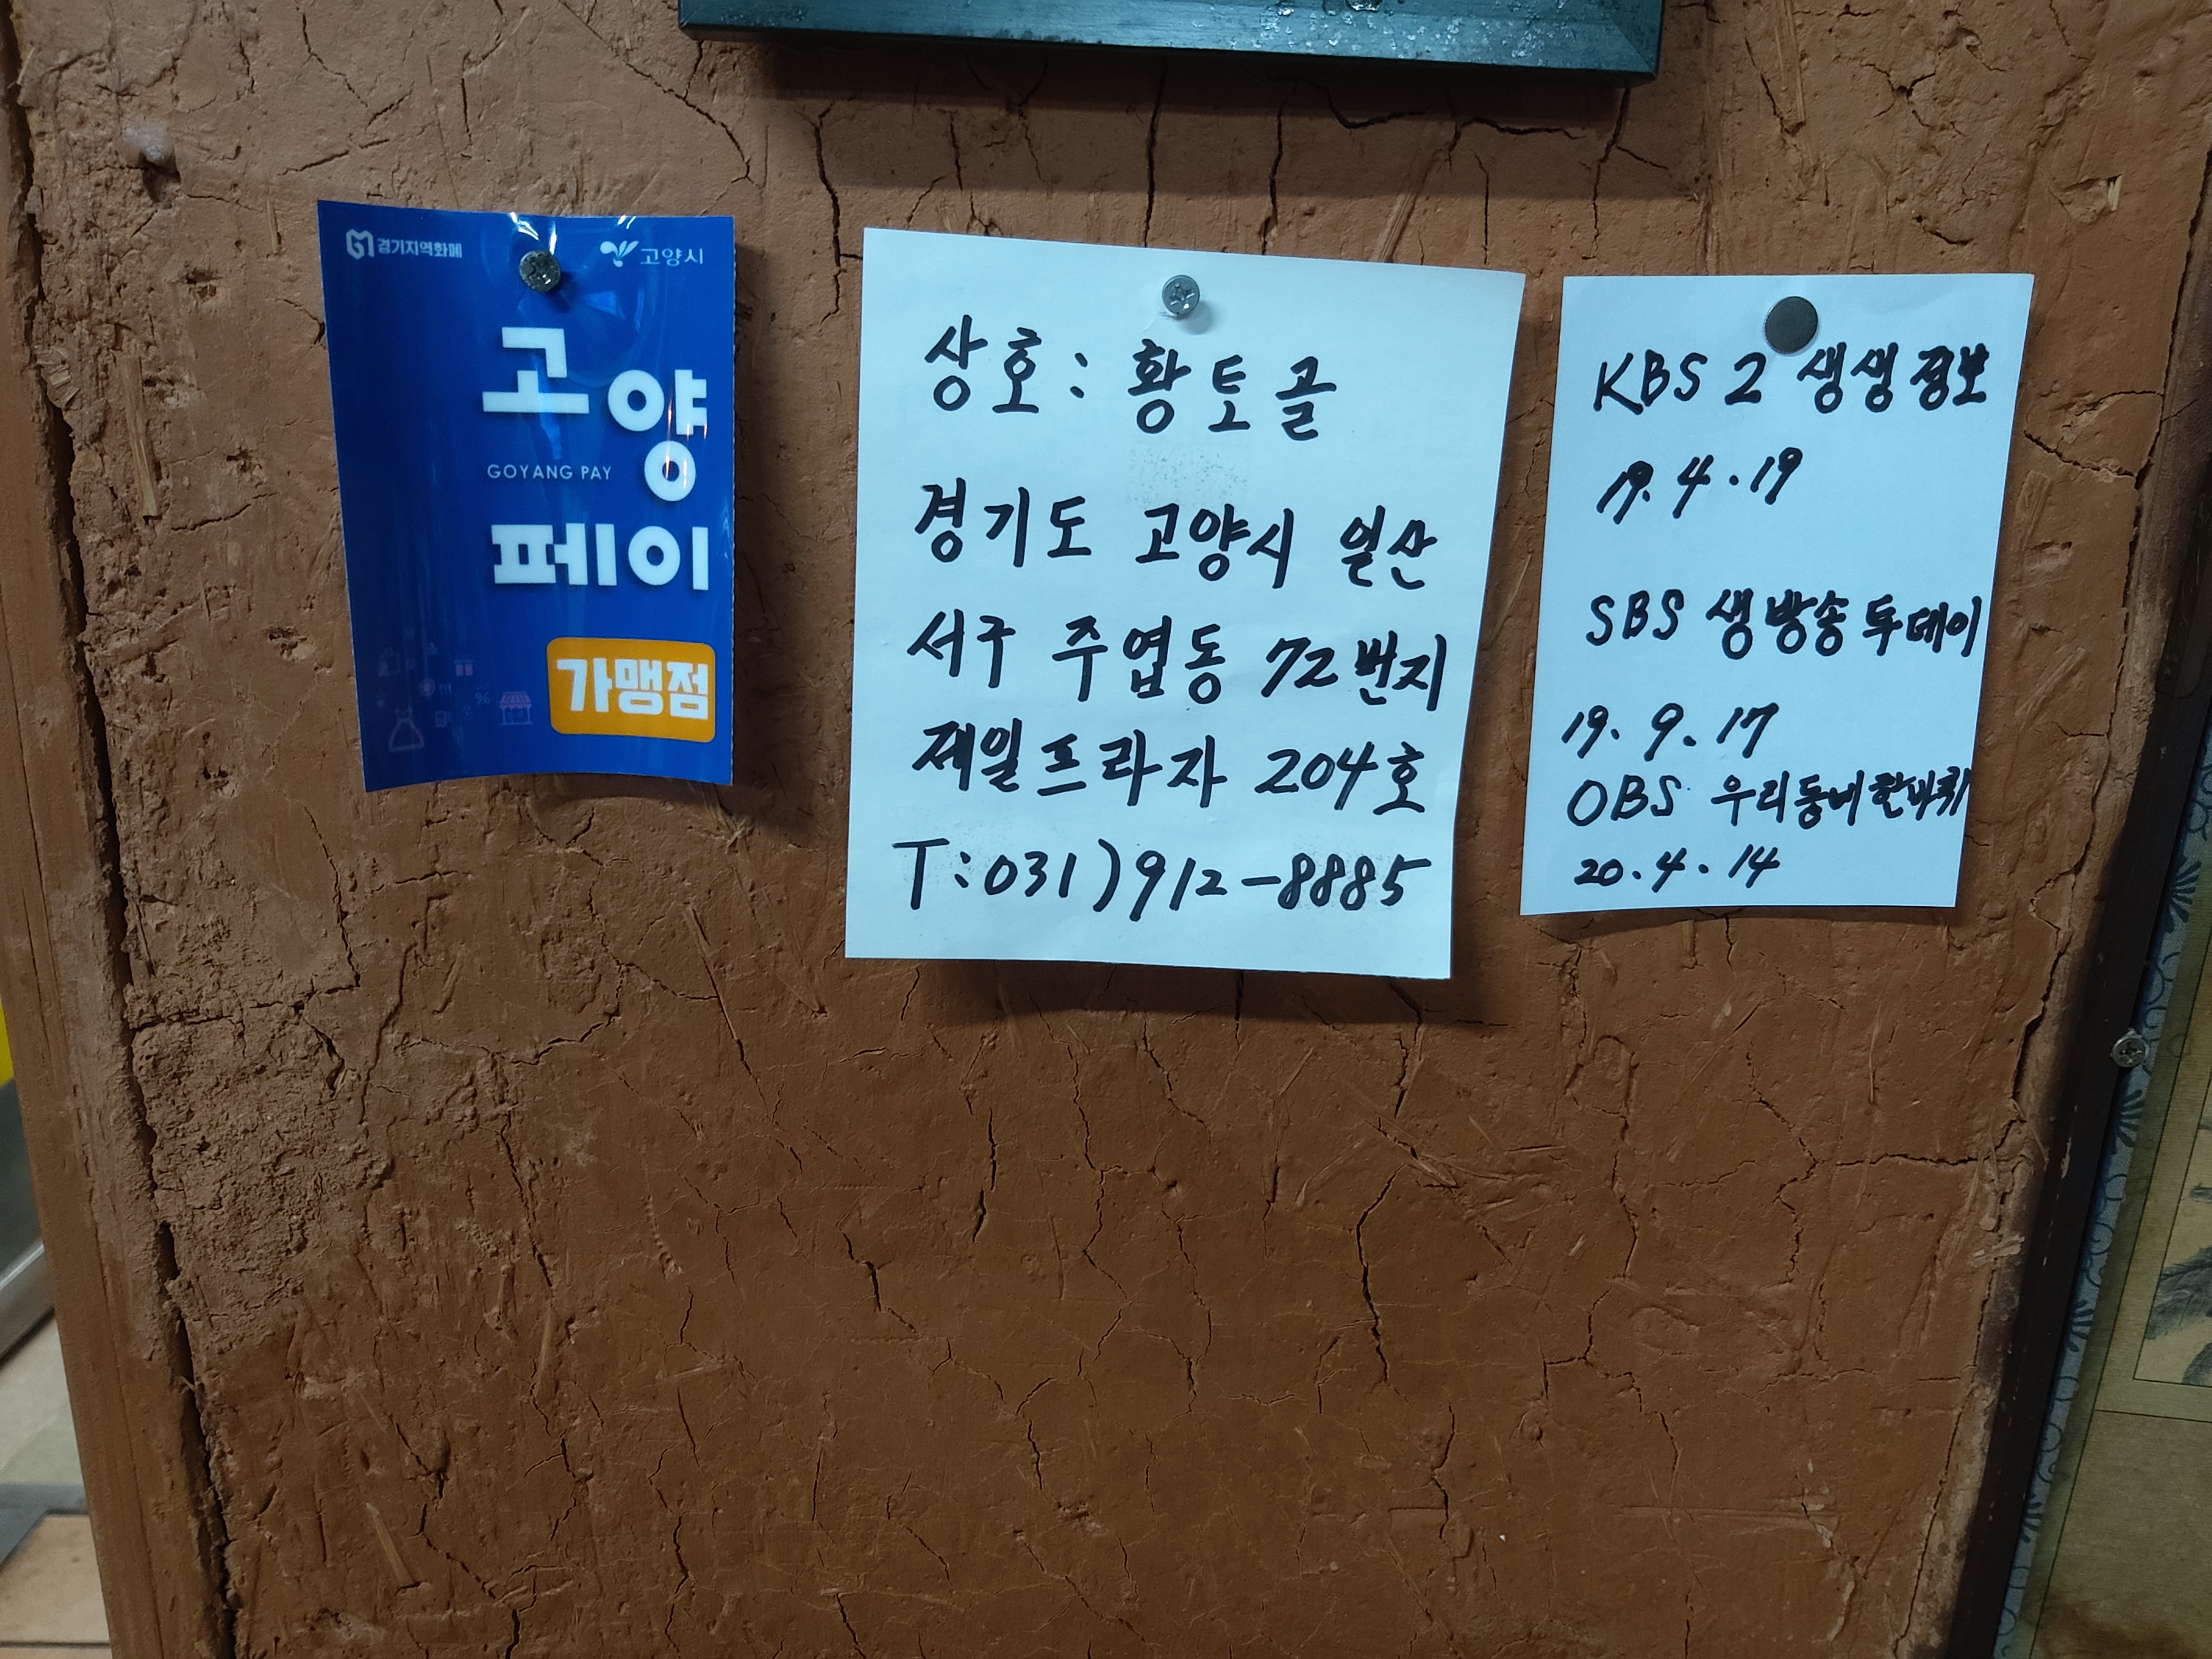 경기지역화폐
고양시
고양
GOYANG PAY
페이
가맹점
상호: 황토골
경기도 고양시 일산
서구 주엽동 72번지
제일프라자 204호
T:031)912-8885
KBS 2 생생정보
19.4.19
SBS 생방송투데이
19.9.17
OBS 우리동네한바퀴
20.4.14